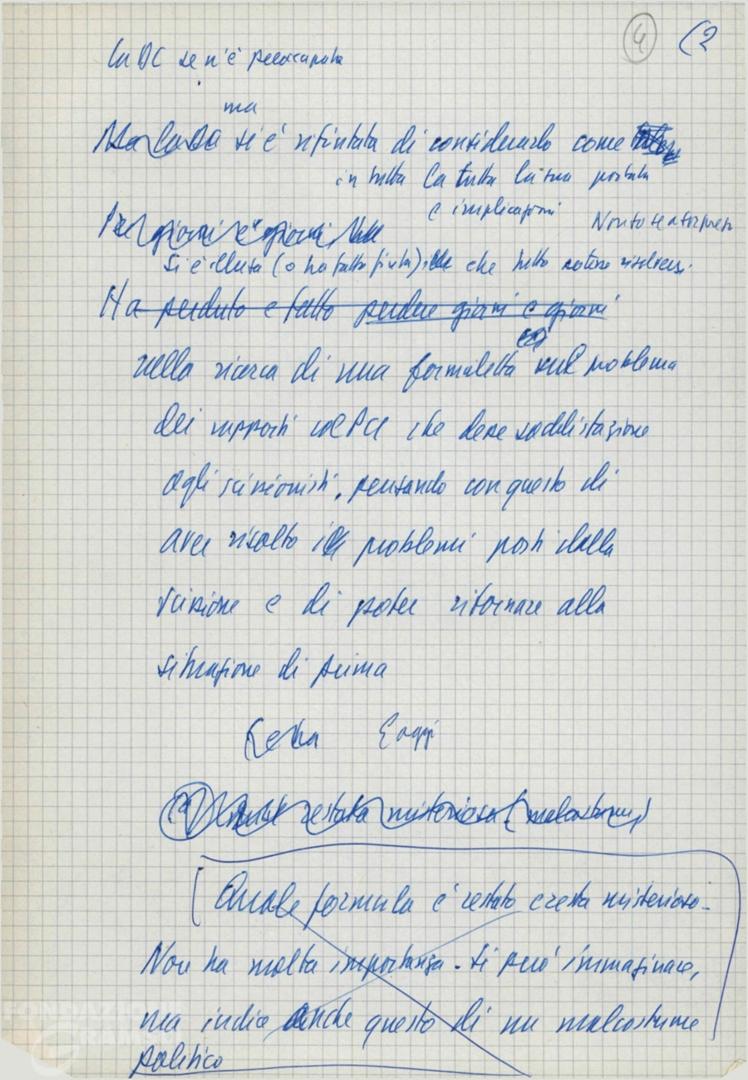 4 (2
La DC se n'è preoccupata
ma
Ma la DC si è rifiutata di considerarlo come
in tutta la tutta la sua portata
e implicazioni
Non so se a torto
Per giorni e giorni
si è illusa (o ha fatto finta) che tutto potesse risolversi
Ha perduto e fatto perdere giorni e giorni
nella ricerca di una formuletta sul problema
dei rapporti col PCI che desse soddisfazione
agli scissionisti, pensando con questo di
aver risolto i problemi posti dalla
scissione e di poter ritornare alla
situazione di prima
E oggi
restata misteriosa (malcostume)
Quale formula è restato e resta misterioso -
Non ha molta importanza. Si può immaginare,
ma indica anche questo di un malcostume
politico
FONDAZIO